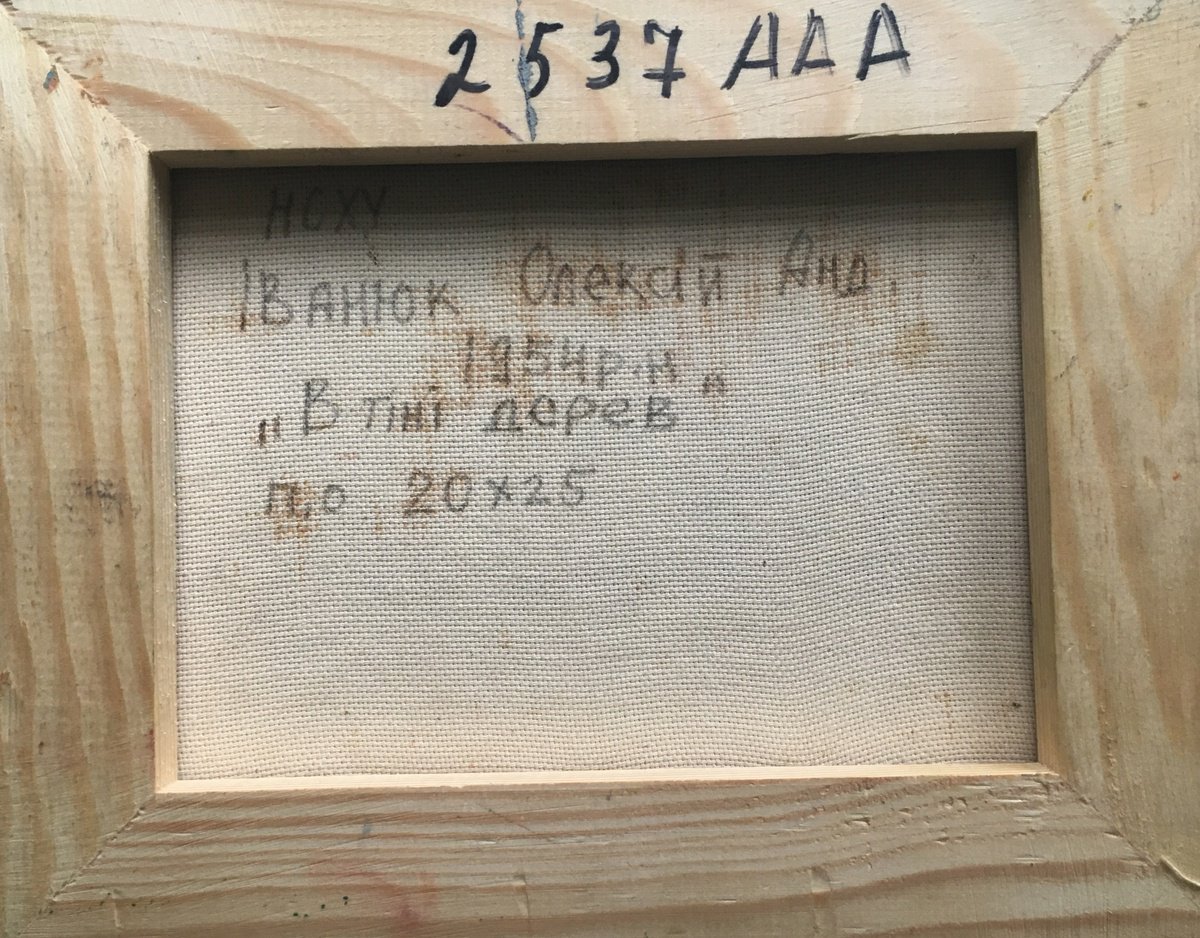 2537 ААА
НСХУ
Іванюк Олексій Анд.
1954 р.н
„В тіні дерев"
п,о 20х25